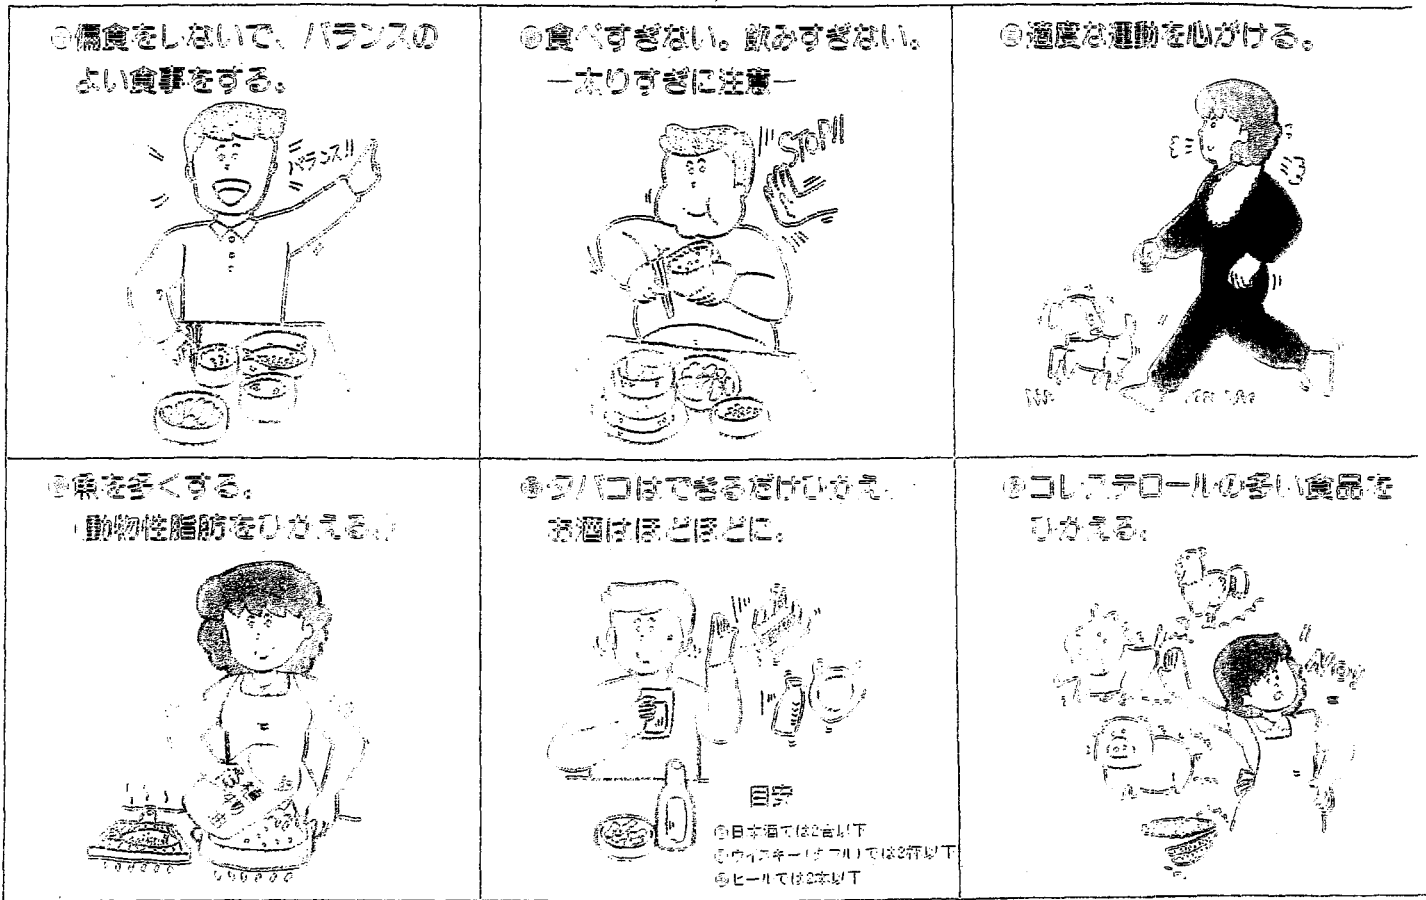 偏食をしないで、バランスの
よい食事をする。
バランス!!
食べすぎない。飲みすぎない。
―太りすぎに注意―
STOP!!
適度な運動を心がける。
魚を多くする。
(動物性脂肪をひかえる。)
タバコはできるだけひかえ、
お酒はほどほどに。
目安
日本酒では2合以下
ウィスキー(ダブル)では2杯以下
ビールでは2本以下
コレステロールの多い食品を
ひかえる。